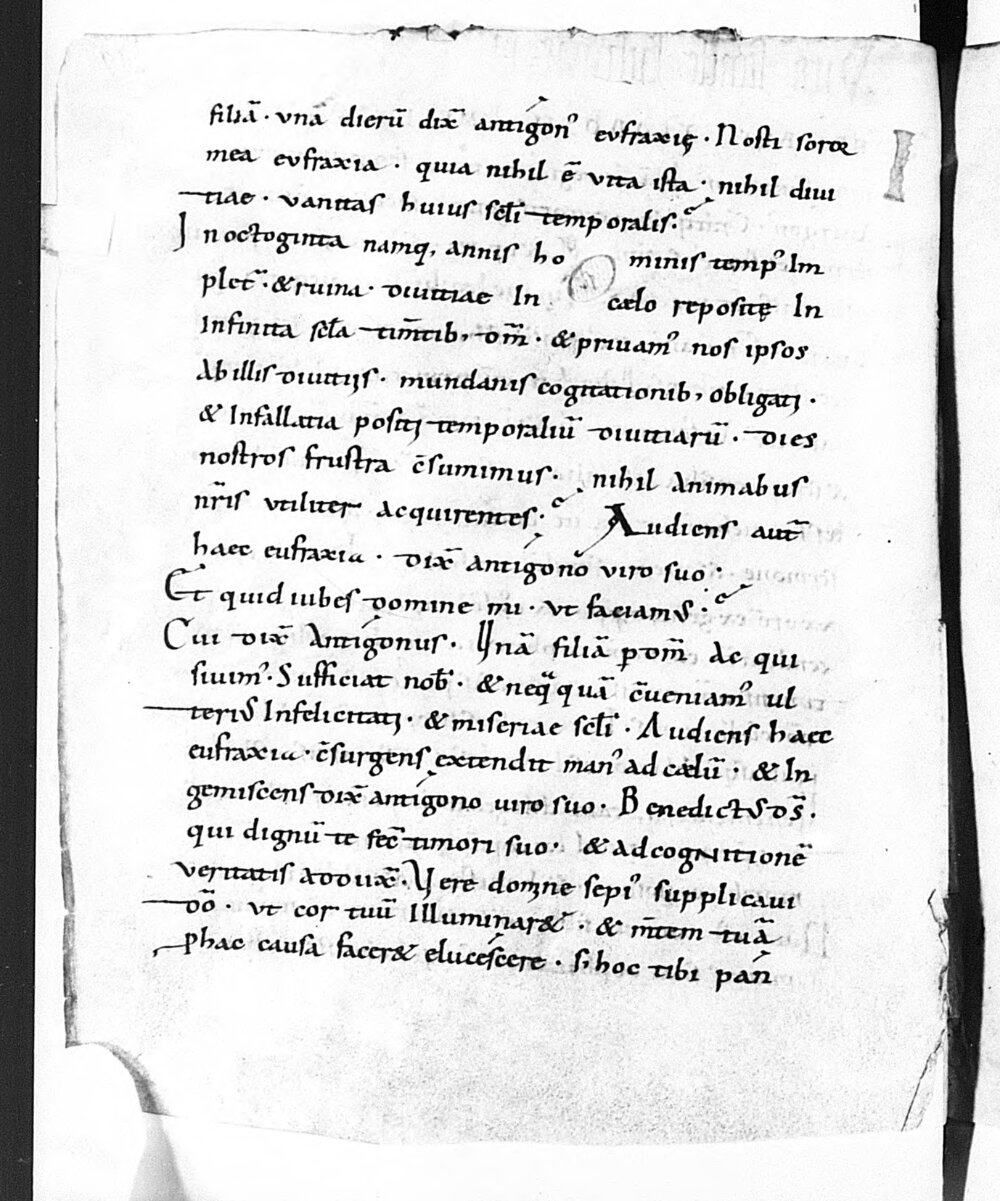 filiā · vnā dierū dix̄ antigon᾽ eufraxię · Nosti soror
mea eufraxia · quia nihil ē vita ista · nihil diui
tiae · vanitas huius scl̄i temporalis·
In octoginta namq, annis ho minis temp᾽ Im
plet᾽· & ruina · diuitiae In cælo repositę In
Infinita scl̄a tim̄tib, dm̄ · & priuam᾽ nos ipsos
Ab illis diuitijs · mundanis cogitationib, obligatj ·
& Infallatia positj temporaliū diuitiarū · dies
nostros frustra c̄sumimus · nihil Animabus
nr̄is vtiliter acquirentes · Audiens aut̄
haec eufraxia · dix̄ antigono viro suo ·
Et quid iubes domine mi · vt faciam᾽ ·
Cui dix̄ Antigonus · Vnā filiā p dm̄ Ac qui
siuim᾽ · Sufficiat nob̄ · & neq̄quā c̄ueniam᾽ ul
teri᾽ Infelicitatj · & miseriae scl̄i · Audiens haec
eufraxia · c̄surgens extendit man᾽ ad cælū · & In
gemiscens dix̄ antigono viro suo · Benedict᾽ ds̄ ·
qui dignū te fec̄ timori suo · & ad cognitionē
veritatis addux̄ · Vere domne sepi᾽ supplicaui
dō · vt cor tuū Illuminar& · & m̄tem tuā
p hac causa facer& elucescere · si hoc tibi pan̄